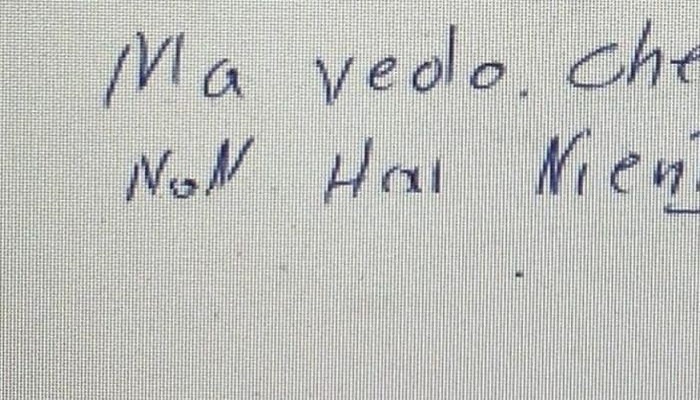 Ma vedo. che
NoN Hai Nien